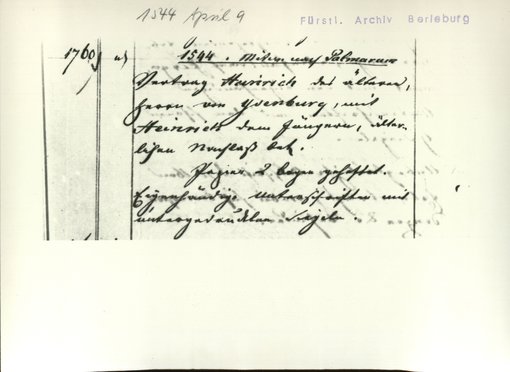 1544 April 9
Fürstl. Archiv Berleburg
1760 a)
1544. Mitw. nach Palmarum
Vertrag Heinrich des älteren,
Herrn von Ysenburg, mit
Heinrich dem Jüngern, älter-
lichen Nachlaß bet.
Papier 2 bogen geheftet.
Eigenhändige Unterschriften mit
untergedruckten Siegeln.